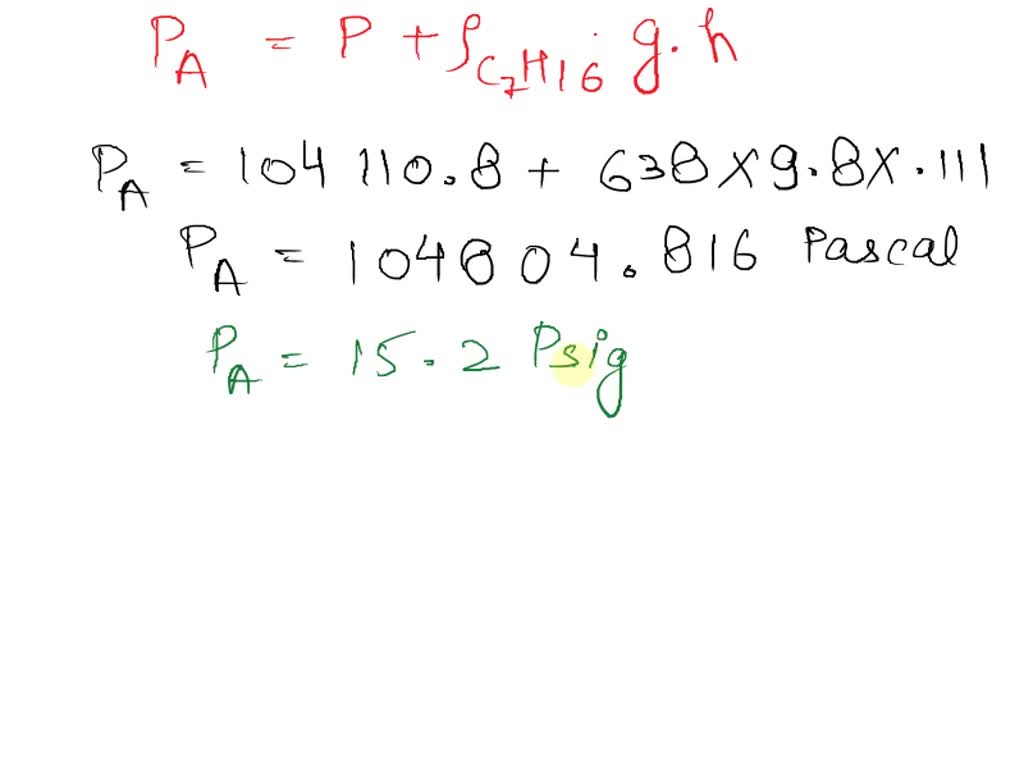 P_A = P + ρ_C₇H₁₆ g. h
P_A = 104 110.8 + 638 X 9.8 X .111
P_A = 104804.816 Pascal
P_A = 15.2 Psig